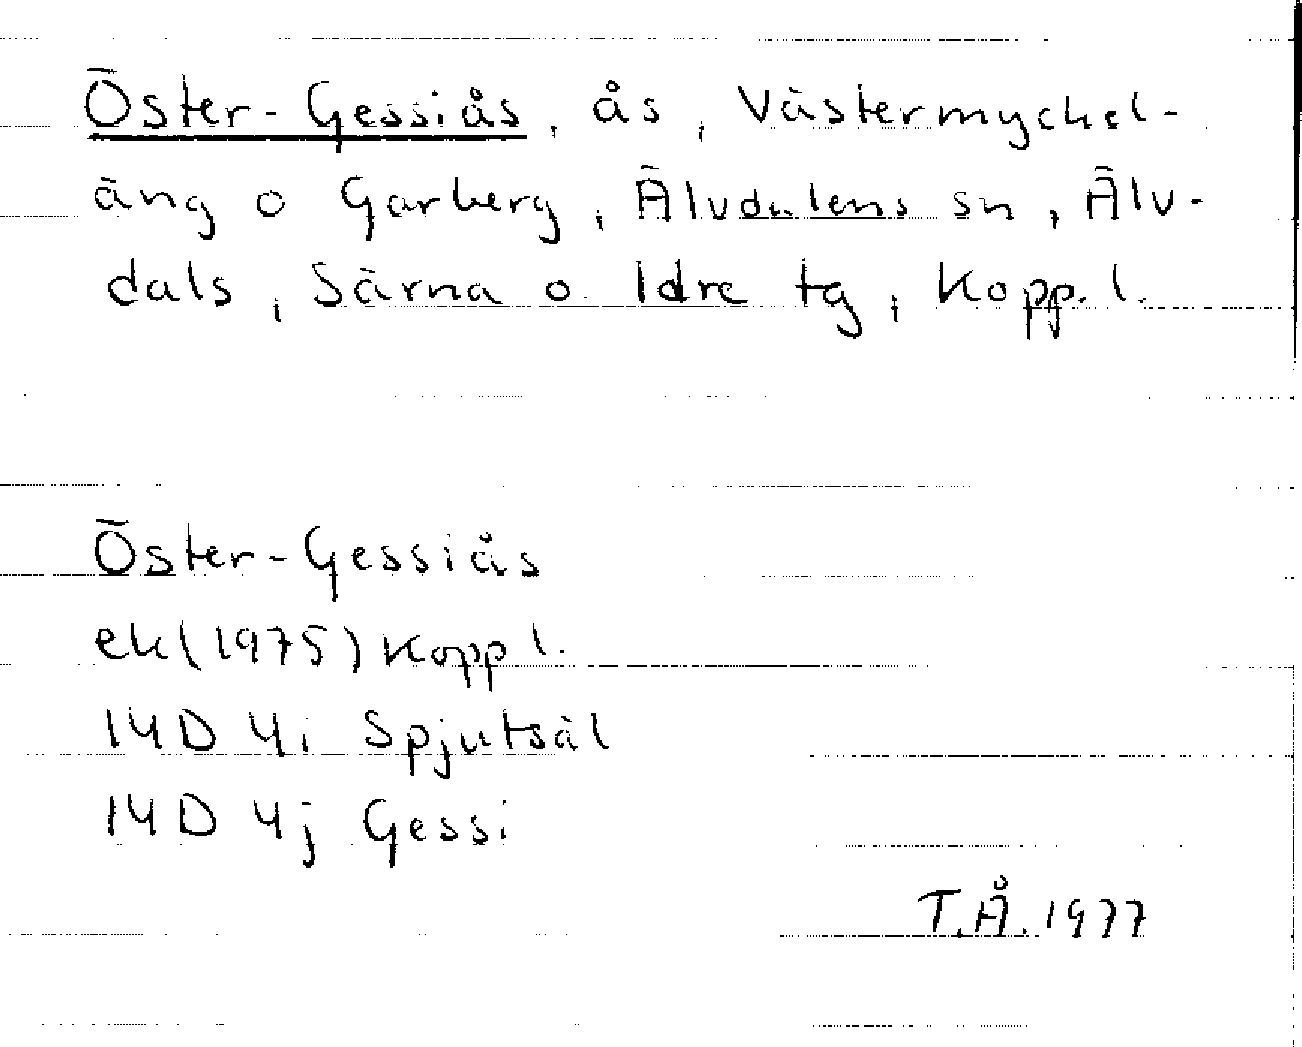 Öster-Gessiås, ås, Västermyckel-
äng o Garberg, Älvdalens sn, Älv-
dals, Särna o Idre tg, Kopp. l.
Öster-Gessiås
ek(1975) Kopp l.
14D 4i Spjutsäl
14D 4j Gessi
T.Å. 1977